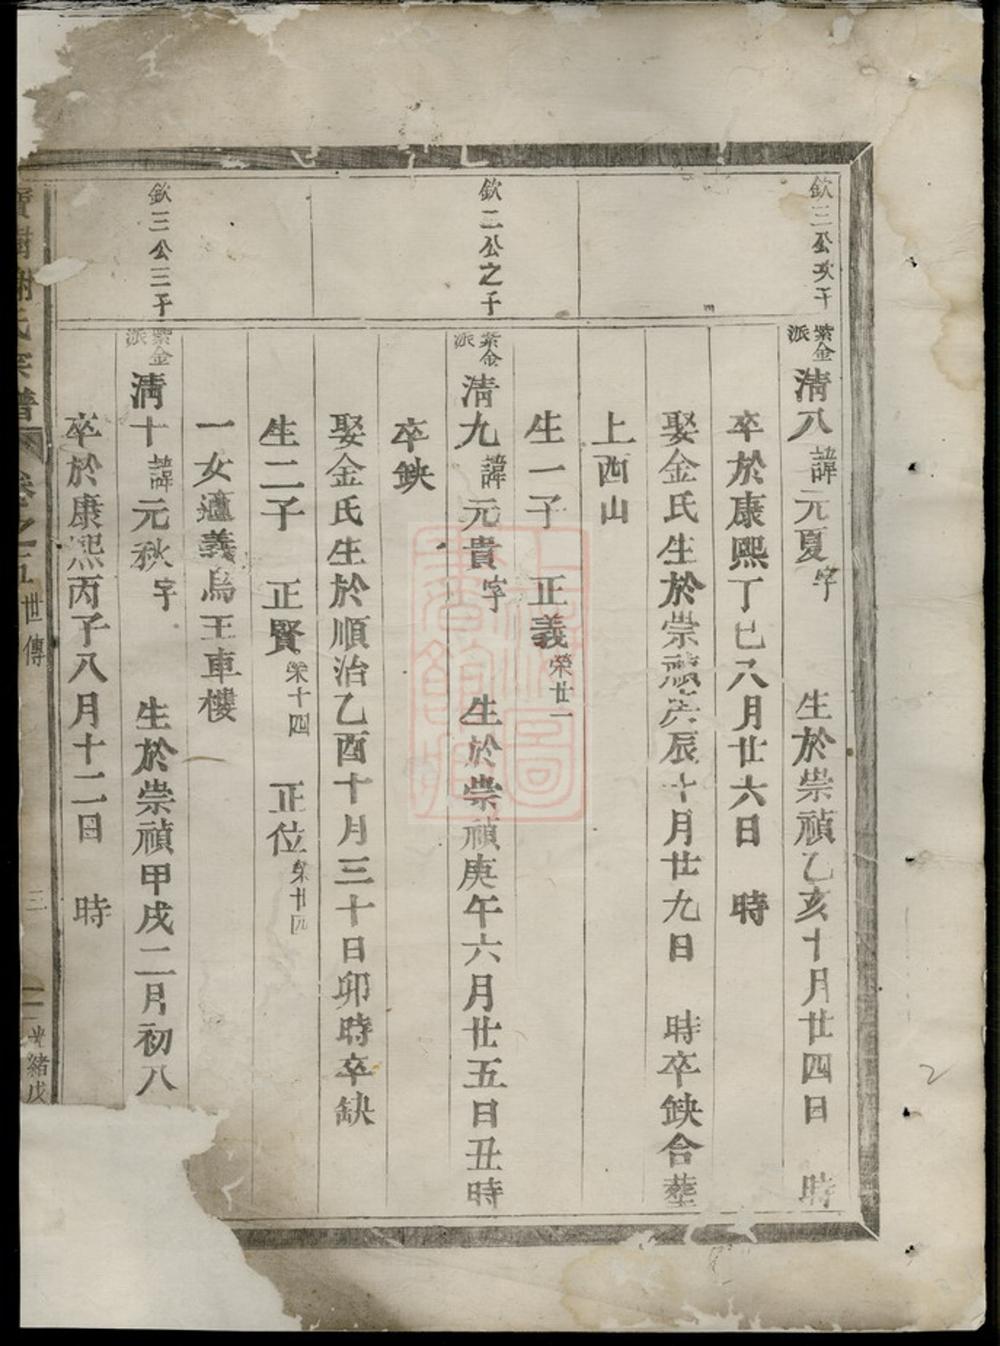 欽三公次子
紫金派 清八 諱元夏 字 生於崇禎乙亥十月廿四日 時
卒於康熙丁巳八月廿六日 時
娶金氏生於崇禎庚辰十月廿九日 時卒缺合塟
上西山
生一子 正義 榮廿一
欽二公之子
紫金派 清九 諱元貴 字 生於崇禎庚午六月廿五日丑時
卒缺
娶金氏生於順治乙酉十月三十日卯時卒缺
生二子 正賢 榮十四 正位 榮廿四
一女適義烏王車樓
欽三公三子
紫金派 清十 諱元秋 字 生於崇禎甲戌二月初八
卒於康熙丙子八月十二日 時
寶樹謝氏宗譜 卷之五 世傳 三 光緒戊